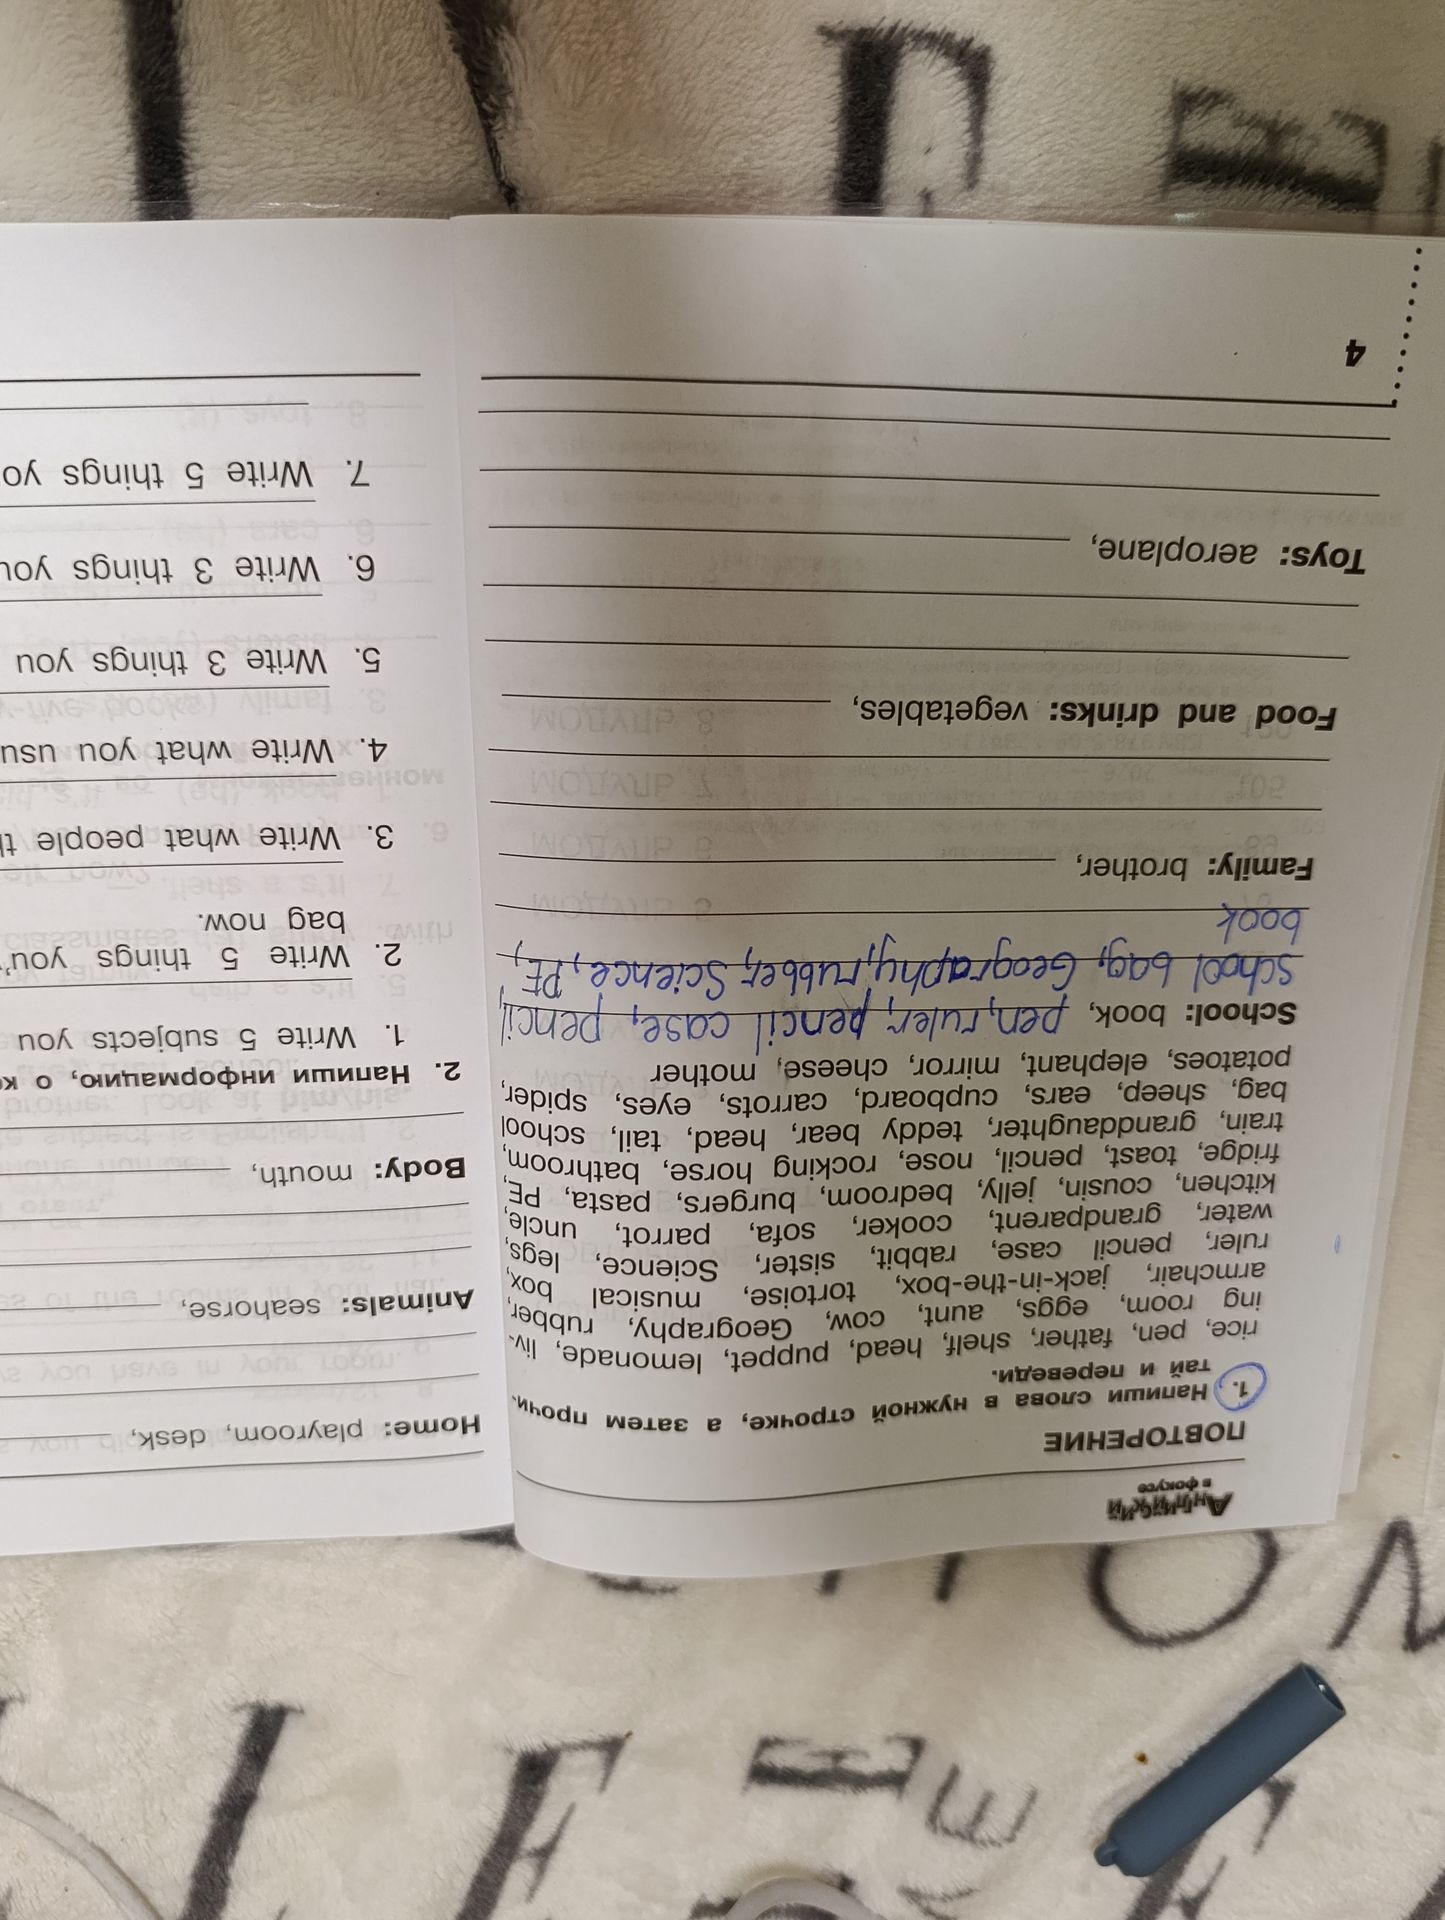 Английский
в фокусе
ПОВТОРЕНИЕ
1. Напиши слова в нужной строчке, а затем прочи-
тай и переведи.
rice, pen, father, shelf, head, puppet, lemonade, liv-
ing room, eggs, aunt, cow, Geography, rubber,
armchair, jack-in-the-box, tortoise, musical box,
ruler, pencil case, rabbit, sister, Science, legs,
water, grandparent, cooker, sofa, parrot, uncle,
kitchen, cousin, jelly, bedroom, burgers, pasta, PE,
fridge, toast, pencil, nose, rocking horse, bathroom,
train, granddaughter, teddy bear, head, tail, school
bag, sheep, ears, cupboard, carrots, eyes, spider,
potatoes, elephant, mirror, cheese, mother
School: book, pen, ruler, pencil case, pencil,
school bag, Geography, rubber, Science, PE,
book
Family: brother,
Food and drinks: vegetables,
Toys: aeroplane,
4
Home: playroom, desk,
Animals: seahorse,
Body: mouth,
2. Напиши информацию, о
1. Write 5 subjects you
2. Write 5 things you'
bag now.
3. Write what people
4. Write what you
5. Write 3 things you
6. Write 3 things you
7. Write 5 things